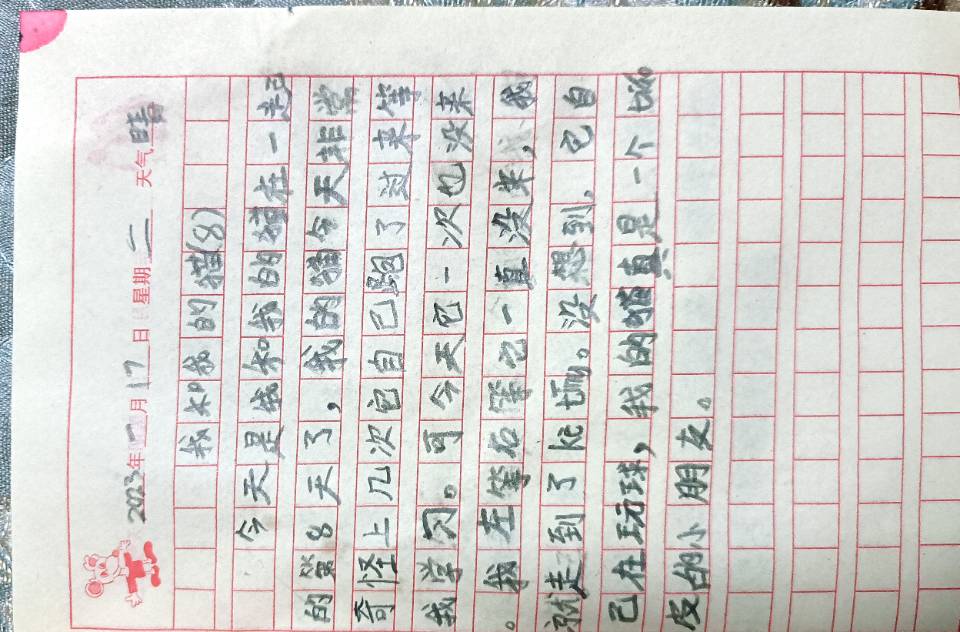 2023年一月17日星期二 天气晴
我和我的猫(8)
今天是我和我的猫在一起
的第8天了，我的猫今天非常
奇怪上几次它自己跑了过来等
我学习。可今天它一次也没来
。我左等右等它一直没来，我
就走到了kè tīng。没想到，它自
己在玩球，我的猫真是一个
皮的小朋友。